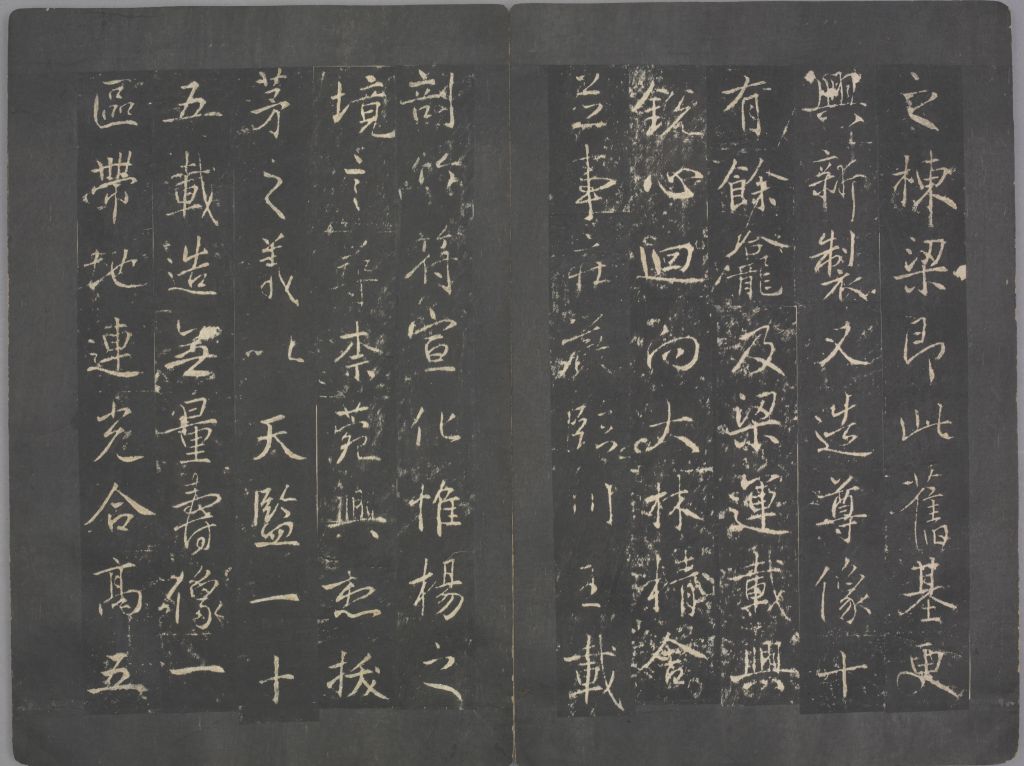 之棟梁即此舊基更
興新製又造尊像十
有餘龕及梁運載興
銳心迴向大林精舍
並事莊嚴臨川王載
剖竹符宣化惟楊之
境言尋柰苑興想拔
茅之義以天監一十
五載造無量壽像一
區帶地連光合高五